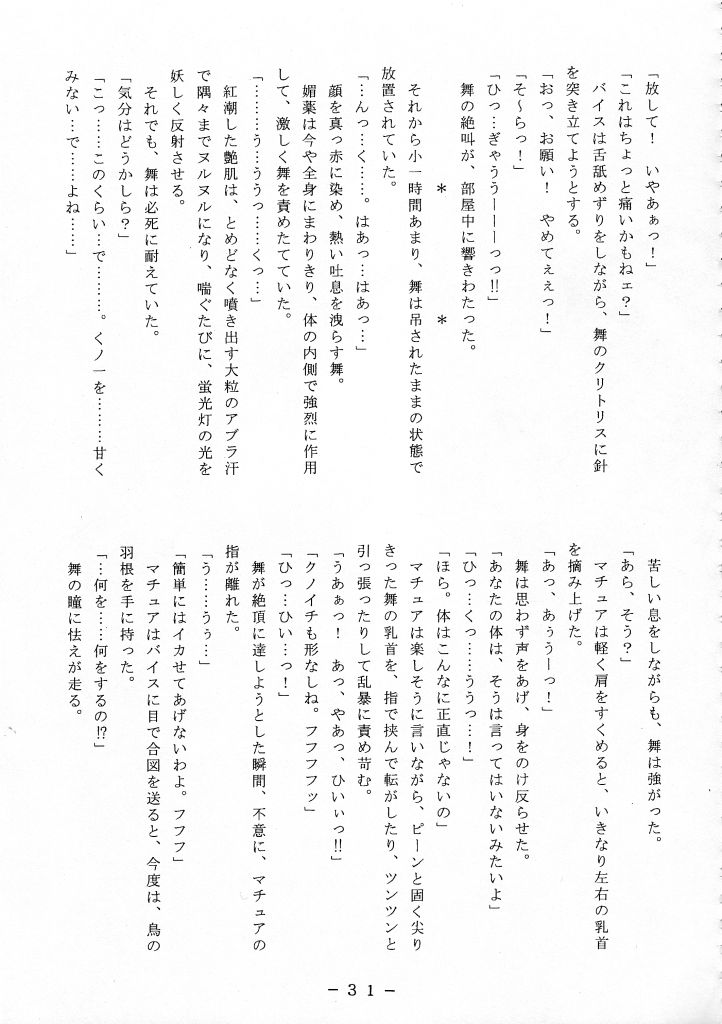 「放して！　いやあぁっ！」
「これはちょっと痛いかもねェ？」
　バイスは舌舐めずりをしながら、舞のクリトリスに針
を突き立てようとする。
「おっ、お願い！　やめてぇぇっ！」
「そ～らっ！」
「ひっ…ぎゃううーーーっっ!!」
　舞の絶叫が、部屋中に響きわたった。
＊　　　　　＊
　それから小一時間あまり、舞は吊されたままの状態で
放置されていた。
「…んっ…く……。はあっ…はあっ…」
　顔を真っ赤に染め、熱い吐息を洩らす舞。
　媚薬は今や全身にまわりきり、体の内側で強烈に作用
して、激しく舞を責めたてていた。
「………う…ううっ……くっ…」
　紅潮した艶肌は、とめどなく噴き出す大粒のアブラ汗
で隅々までヌルヌルになり、喘ぐたびに、蛍光灯の光を
妖しく反射させる。
　それでも、舞は必死に耐えていた。
「気分はどうかしら？」
「こっ……このくらい…で………。くノ一を………甘く
みない…で……よね……」
　苦しい息をしながらも、舞は強がった。
「あら、そう？」
　マチュアは軽く肩をすくめると、いきなり左右の乳首
を摘み上げた。
「あっ、あぅうーっ！」
　舞は思わず声をあげ、身をのけ反らせた。
「あなたの体は、そうは言ってはいないみたいよ」
「ひっ…くっ……ううっ…！」
「ほら。体はこんなに正直じゃないの」
　マチュアは楽しそうに言いながら、ピーンと固く尖り
きった舞の乳首を、指で挟んで転がしたり、ツンツンと
引っ張ったりして乱暴に責め苛む。
「うあぁっ！　あっ、やあっ、ひいぃっ!!」
「クノイチも形なしね。フフフフッ」
「ひっ…ひい…っ！」
　舞が絶頂に達しようとした瞬間、不意に、マチュアの
指が離れた。
「う……うぅ…」
「簡単にはイカせてあげないわよ。フフフ」
　マチュアはバイスに目で合図を送ると、今度は、鳥の
羽根を手に持った。
「…何を……何をするの!?」
　舞の瞳に怯えが走る。
－31－